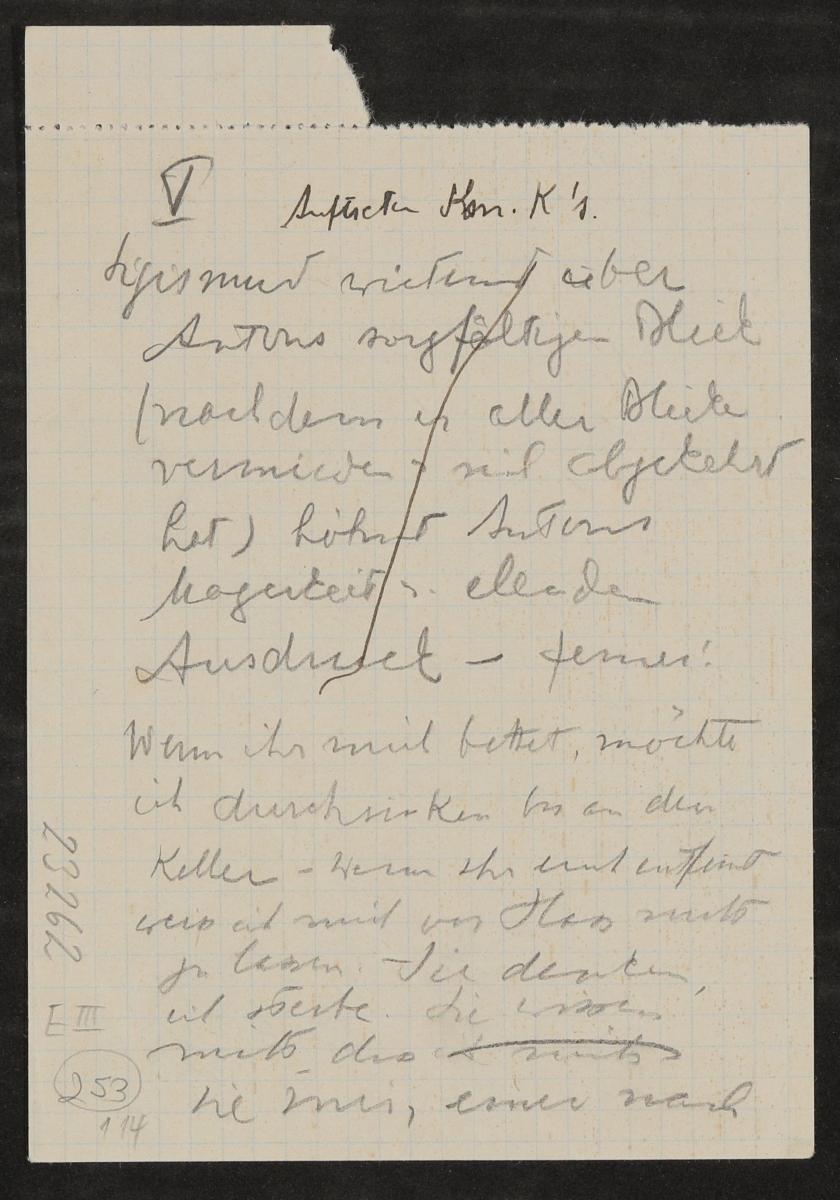 V
Auftreten Kon. K's.
Sigismund wütend über
Antons sorgfältigen Blick
(nachdem er aller Blicke
vermieden + sich abgekehrt
hat) höhnt Antons
Magerkeit u. elenden
Ausdruck – ferner:
Wenn ihr mich bettet, möchte
ich durchsinken bis an den
Keller – Wenn ihr euch entfernt
weis ich mich vor Hass nicht
zu lassen. Sie denken,
ich sterbe. Sie wissen
nichts das ich nichts
Sie einer nach
23262
E III
253
114